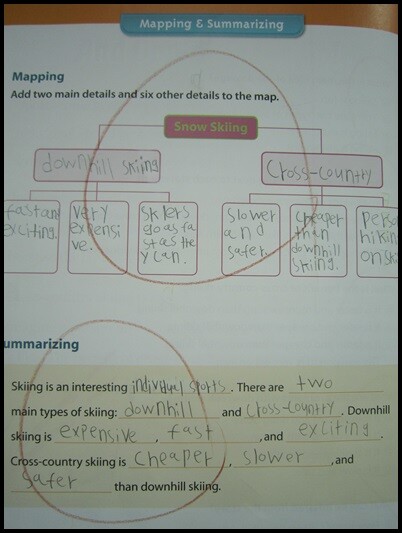 Mapping & Summarizing
Mapping
Add two main details and six other details to the map.
Snow Skiing
downhill skiing
Cross-country
fast and
exciting.
very
expensi
ve.
skiers
go as fa
st as the
y can.
slower
and
safer.
cheaper
than
downhill
skiing.
perso
hikin
on sk
ummarizing
Skiing is an interesting individual sports. There are two
main types of skiing: downhill and Cross-country. Downhill
skiing is expensive, fast, and exciting.
Cross-country skiing is Cheaper, slower, and
safer than downhill skiing.